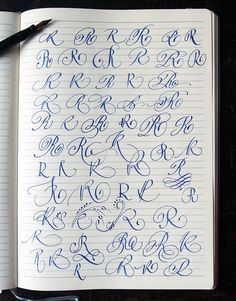 R R R R R R
R R R R R R R
R R R R R R
R R R R R R
R R R R R R R
R R R R R R
R R R R R R R
R R R R R
R R R R R
R R R R
R R R R R
R R R R R